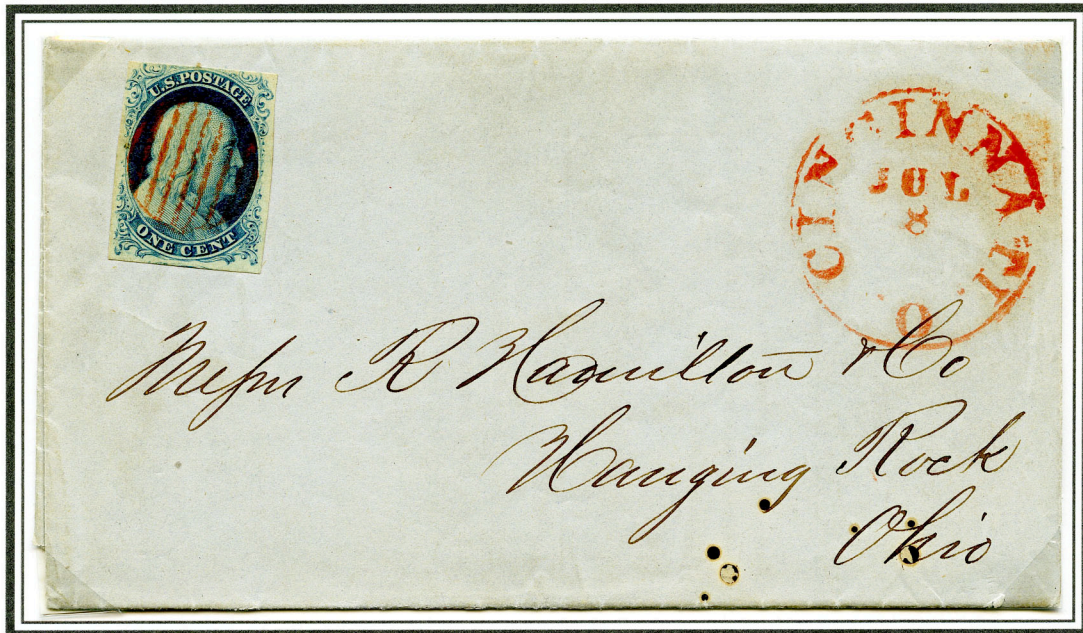 U.S. POSTAGE
ONE CENT
CINCINNATI. O
JUL
8
Messrs R Hamilton & Co
Hanging Rock
Ohio